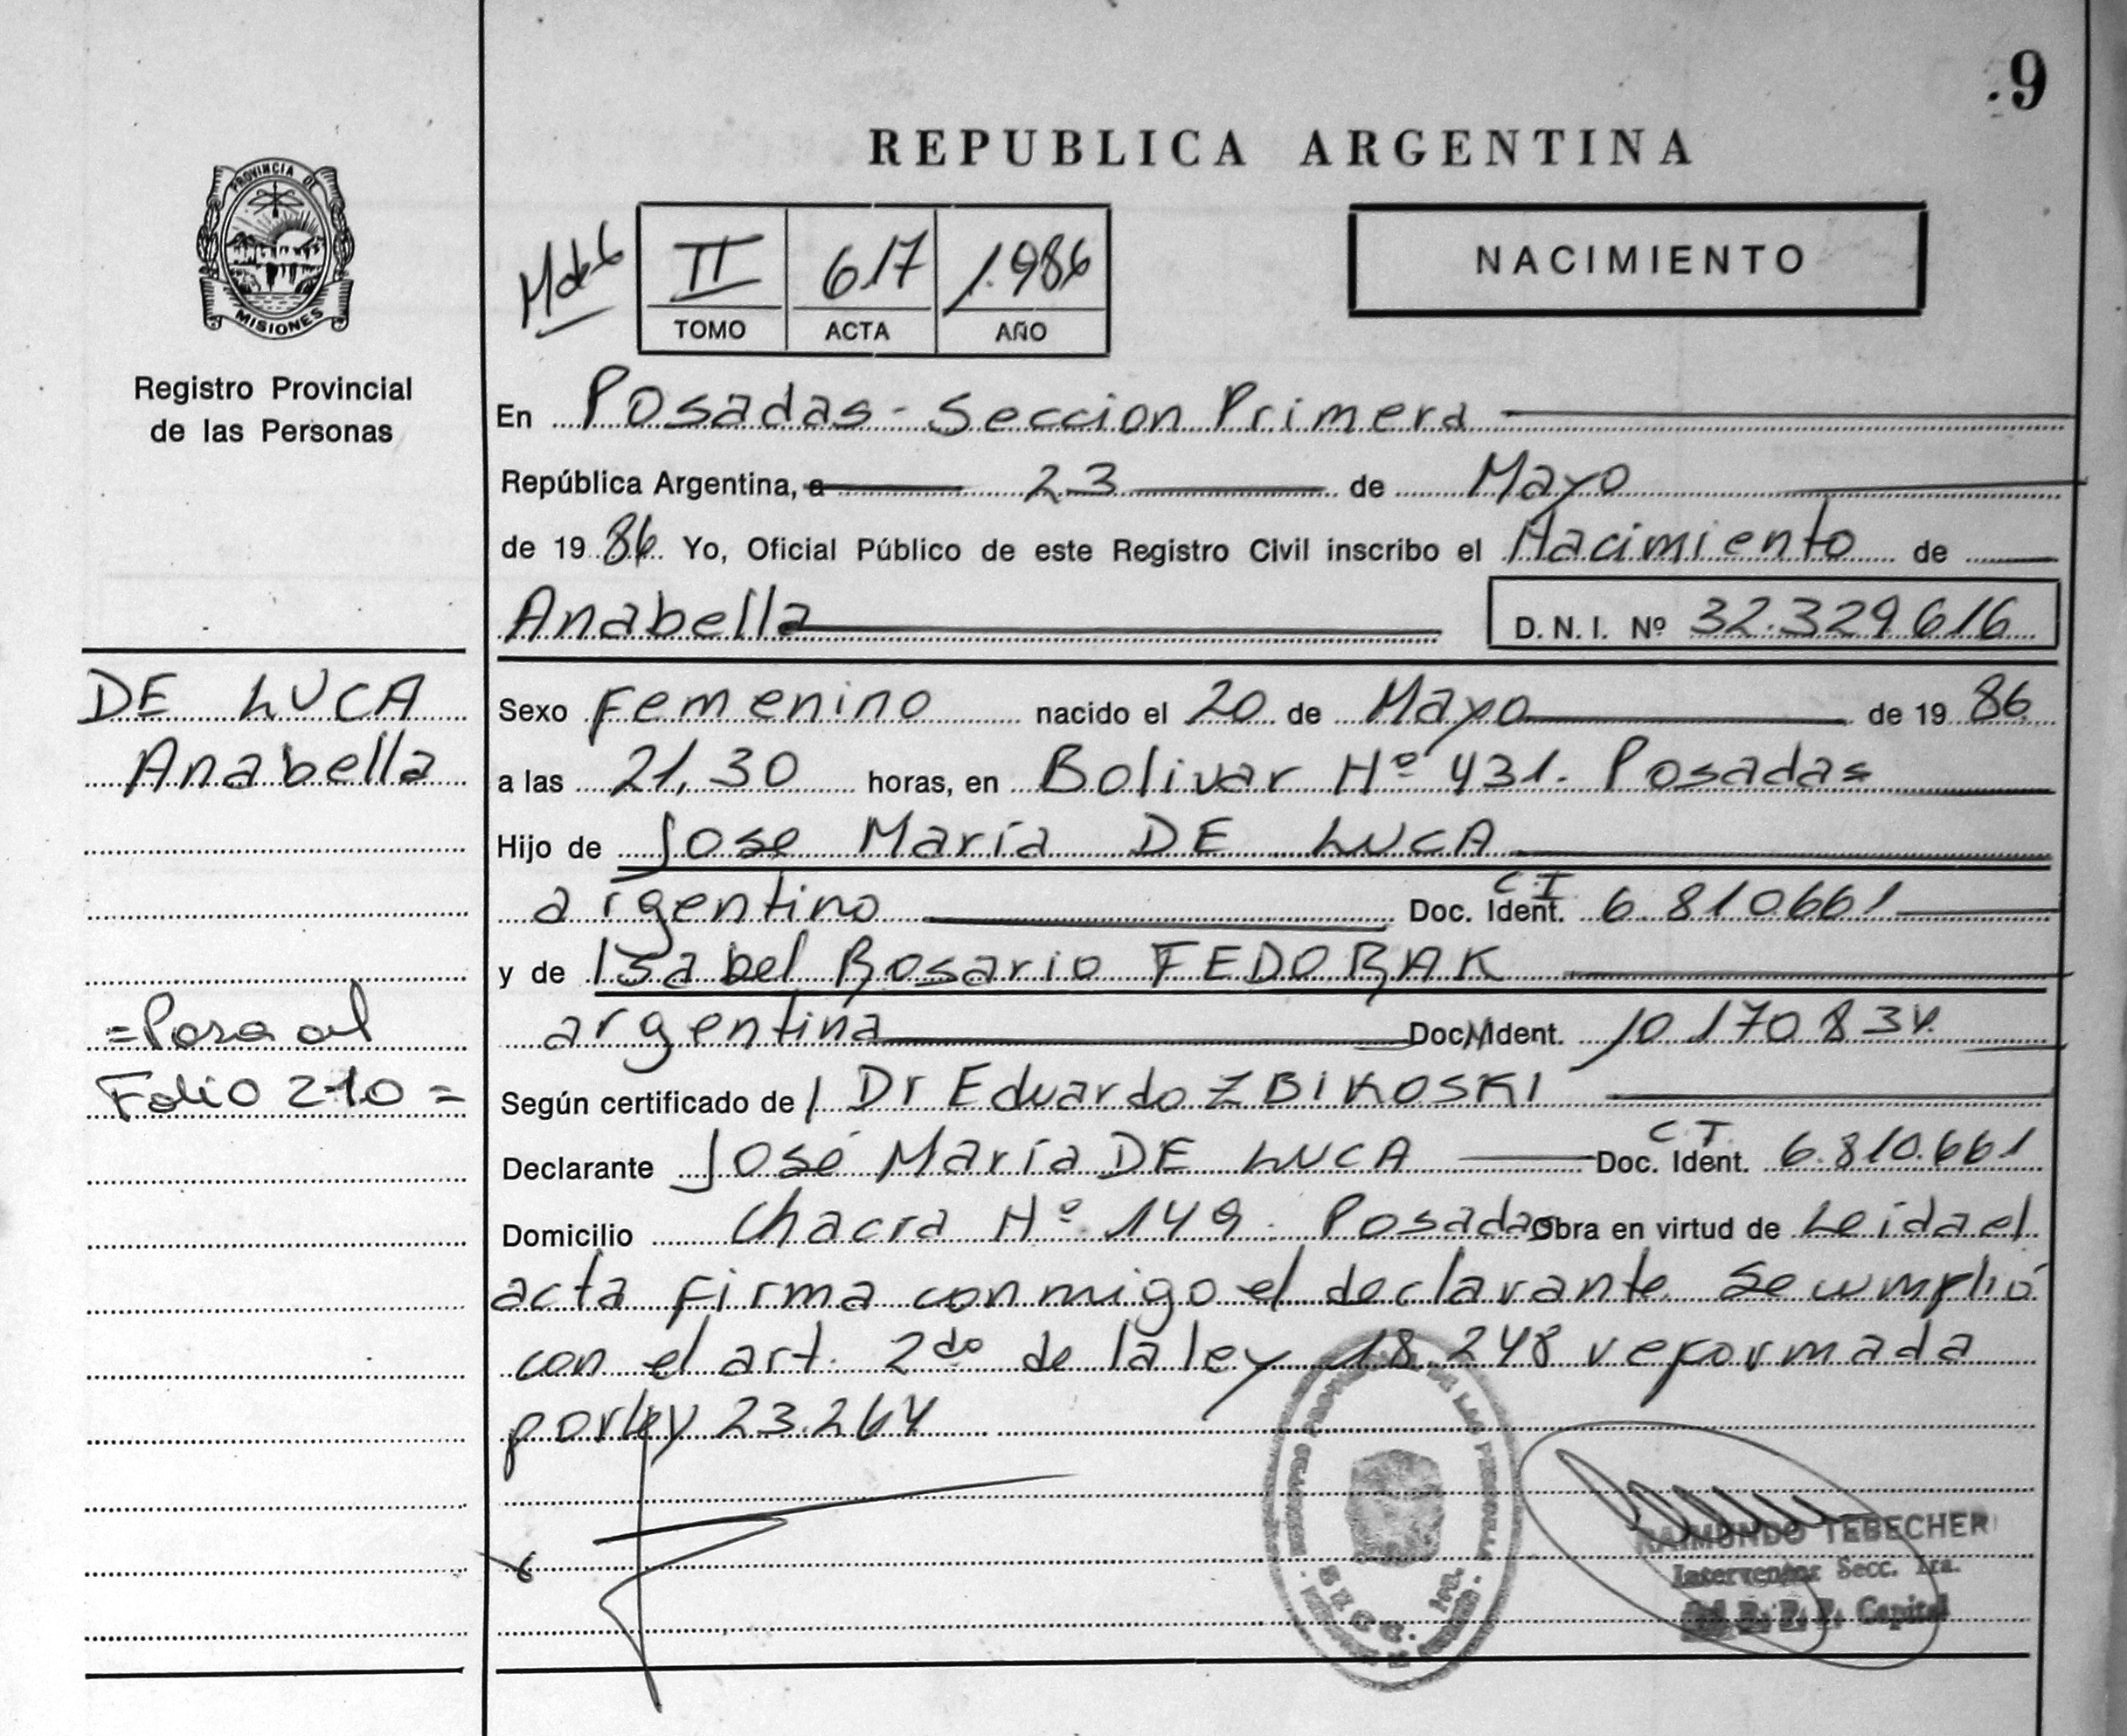 9
REPUBLICA ARGENTINA
PROVINCIA DE
MISIONES
Registro Provincial
de las Personas
II 617 1.986
TOMO ACTA AÑO
NACIMIENTO
En Posadas - Seccion Primera
República Argentina, a 23 de Mayo
de 19 86 Yo, Oficial Público de este Registro Civil inscribo el Nacimiento de
Anabella D. N. I. Nº 32.329.616
DE LUCA
Anabella
Sexo Femenino nacido el 20 de Mayo de 19 86
a las 21,30 horas, en Bolivar Nº 431. Posadas
Hijo de Jose María DE LUCA
argentino C.I Doc. Ident. 6.810661
y de Isabel Rosario FEDORAK
argentina Doc. Ident. 10.170.834
=Pasa al
Folio 210=
Según certificado de Dr Eduardo ZBIKOSKI
Declarante José María DE LUCA C.I. Doc. Ident. 6.810.661
Domicilio Chacra Nº 149. Posadas Obra en virtud de Leida el
acta firma conmigo el declarante. Se cumplió
con el art. 2do de la ley 18.248 reformada
por ley 23.264
RAIMUNDO TEBECHER
Interventor Secc. 1ra.
R. P. P. Capital